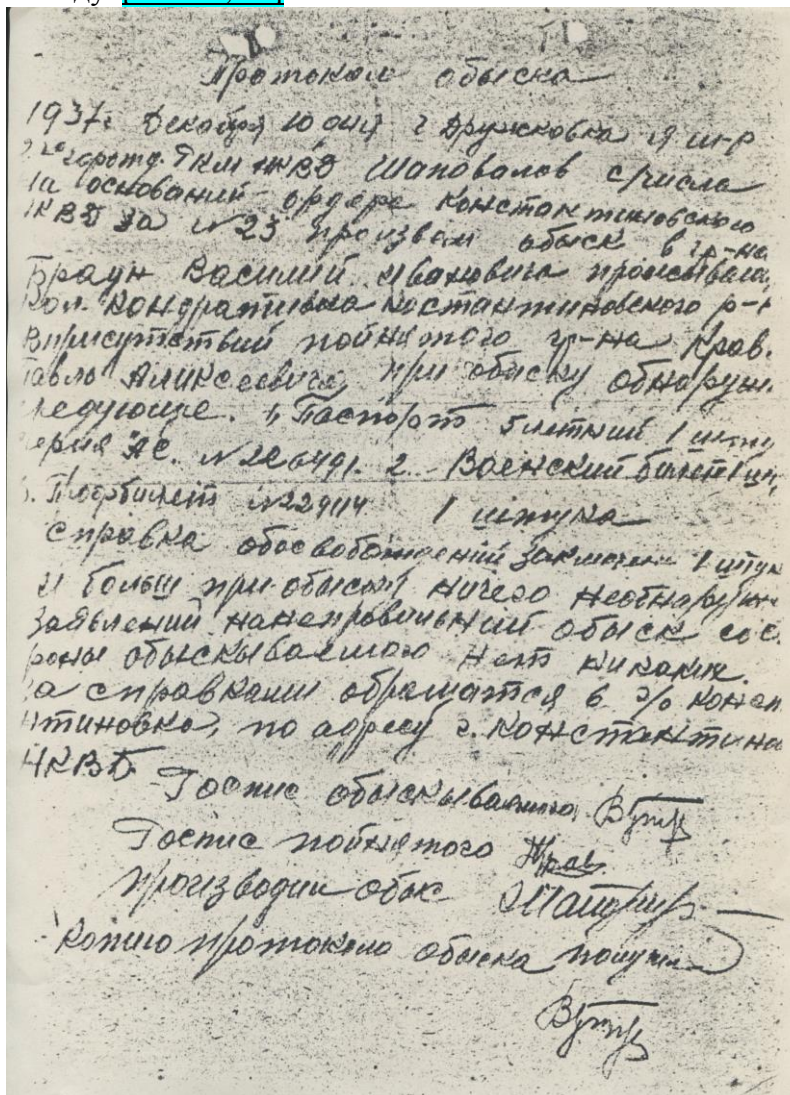 Протокол обыска
1937г Декабря 10 дня г Дружковка я
РКМ НКВД Шаповалов с/числа
На оснований ордера Константиновского
НКВД за №23 произвел обыск в гр-на
Браун Василий Ивановича
Кол. Кондративка Костантиновского р-
Вприсутствий пойнятого гр-на Крав.
Павло Аликсеевича, при обыску обнаруж.
следующие. 1, Паспорт 5летний 1 штук
серия АС. 2. Военский билет 1 шт,
3. Профбилет 1 штука
Справка обосвобождений заключен 1 штук
и больш при обыски ничего необнаруж
Заявлений нанеправильний обыск со с.
роны обыскываемого нет никаких.
За справками обращатся в Конст
нтиновка, по адресу г. Константина
НКВД
Роспис обыскываемого
Роспис пойнятого Крав
производил обыс
Копию протокола обыска получил